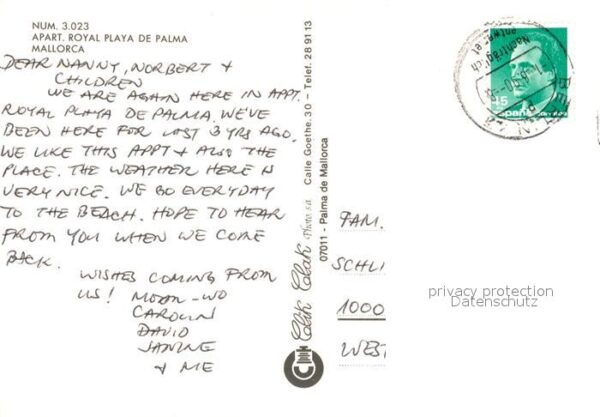 NUM. 3.023
APART. ROYAL PLAYA DE PALMA
MALLORCA
DEAR NANNY, NORBERT &
CHILDREN
WE ARE AGAIN HERE IN APPT.
ROYAL PLAYA DE PALMA. WE'VE
BEEN HERE FOR LAST 3 YRS AGO.
WE LIKE THIS APPT & ALSO THE
PLACE. THE WEATHER HERE IS
VERY NICE. WE GO EVERYDAY
TO THE BEACH. HOPE TO HEAR
FROM YOU WHEN WE COME
BACK.
WISHES COMING FROM
US! MOON-WO
CAROLIN
DAVID
JANINE
& ME
Clik Clak Photo s.a. Calle Goethe, 30 - Telef. 28 91 13
07011 - Palma de Mallorca
Nachträglich
entwertet
BERLIN
15
España
FAM.
SCHLI
1000
WEST
privacy protection
Datenschutz